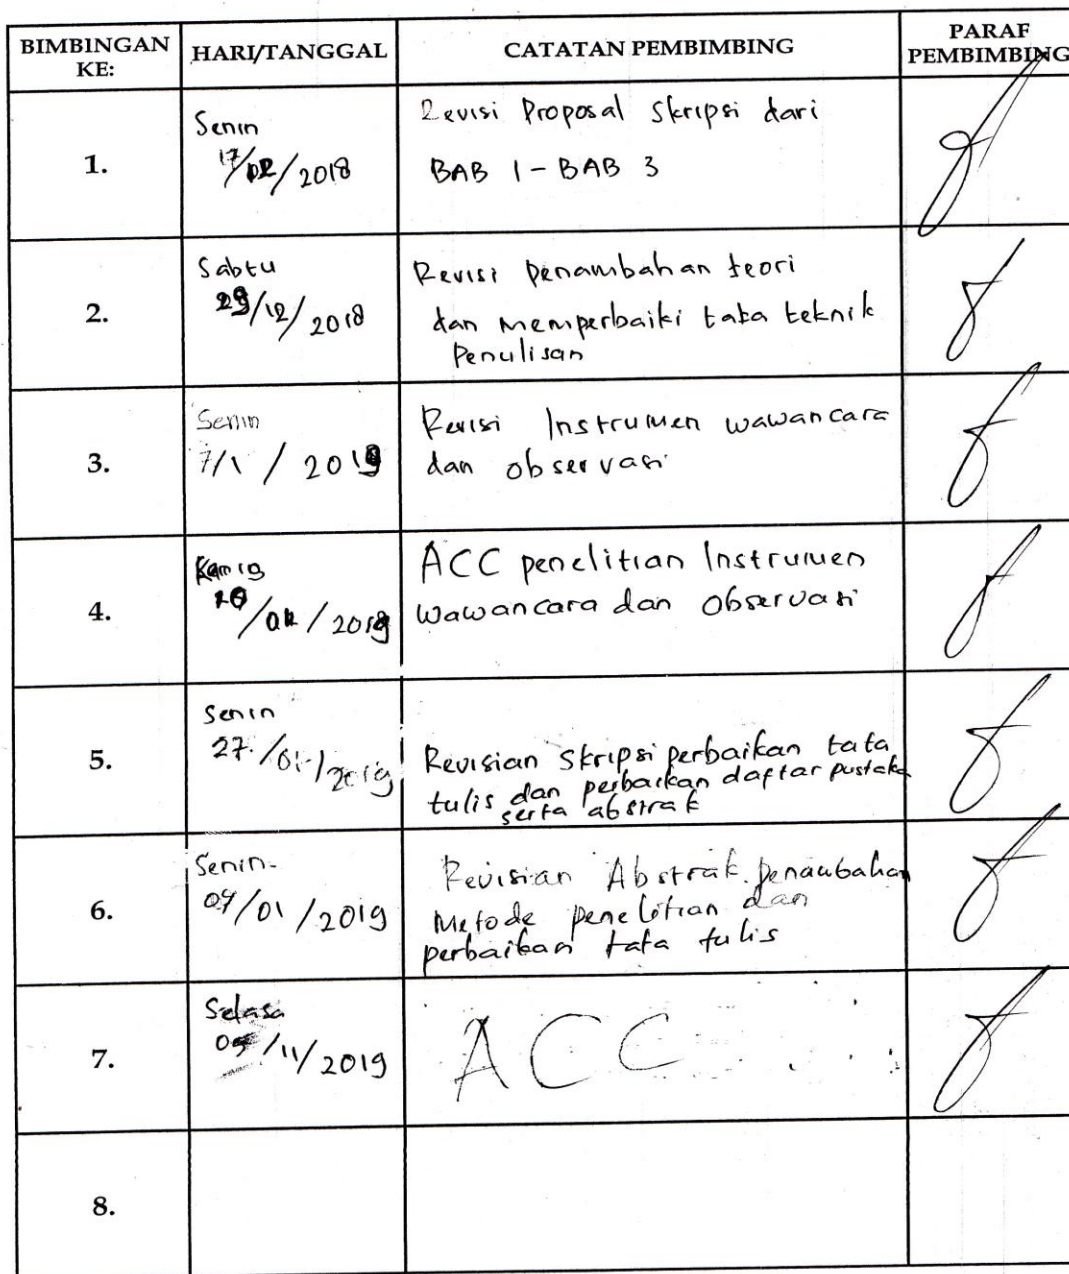 BIMBINGAN KE:
HARI/TANGGAL
CATATAN PEMBIMBING
PARAF PEMBIMBING
1.
Senin
17/12/2018
Revisi Proposal Skripsi dari
BAB 1 - BAB 3
2.
Sabtu
29/12/2018
Revisi penambahan teori
dan memperbaiki tata teknik
Penulisan
3.
Senin
7/1/2019
Revisi Instrumen wawancara
dan observasi
4.
Kamis
/2019
ACC penelitian Instrumen
wawancara dan observasi
5.
Senin
27/01/2019
Revisian skripsi perbaikan tata
tulis dan perbaikan daftar pustaka
serta abstrak
6.
Senin
/01/2019
Revisian Abstrak. penambahan
Metode penelitian dan
perbaikan tata tulis
7.
Selasa
05/11/2019
ACC
8.